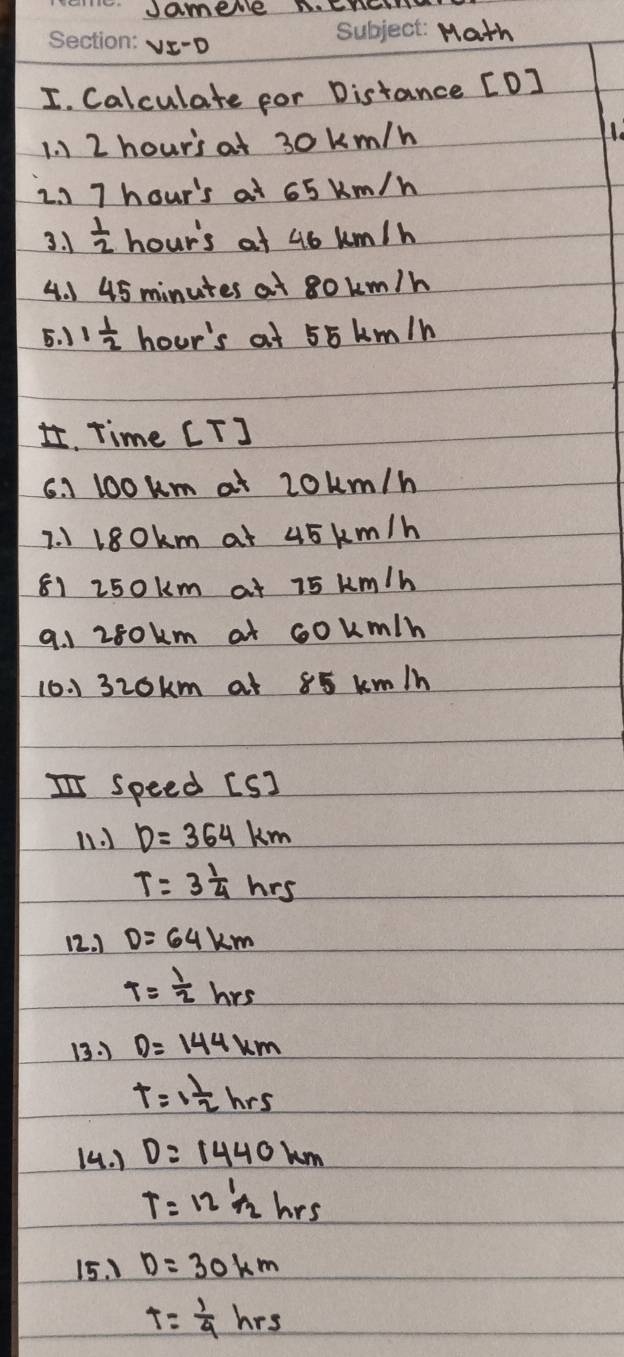 Jamelle
Section: VI-D Subject: Math
I. Calculate for Distance [D]
1.) 2 hour's at 30 km/h
2.) 7 hour's at 65 km/h
3.) 1/2 hour's at 46 km/h
4.) 45 minutes at 80 km/h
5.) 1 1/2 hour's at 55 km/h
II. Time [T]
6.) 100 km at 20 km/h
7.) 180km at 45 km/h
8) 250km at 75 km/h
9.) 280km at 60 km/h
10.) 320km at 85 km/h
III Speed [S]
11.) D= 364 km
T= 3 1/4 hrs
12.) D= 64 km
T= 1/2 hrs
13.) D= 144 km
T= 1 1/2 hrs
14.) D= 1440 km
T= 12 1/2 hrs
15.) D= 30 km
T= 1/4 hrs